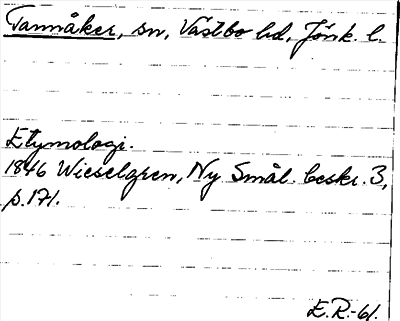 Tannåker, sn, Västbo hd, Jönk. l.
Etymologi.
1846 Wieselgren, Ny Smål. beskr. 3,
p. 171.
E.R.-61.